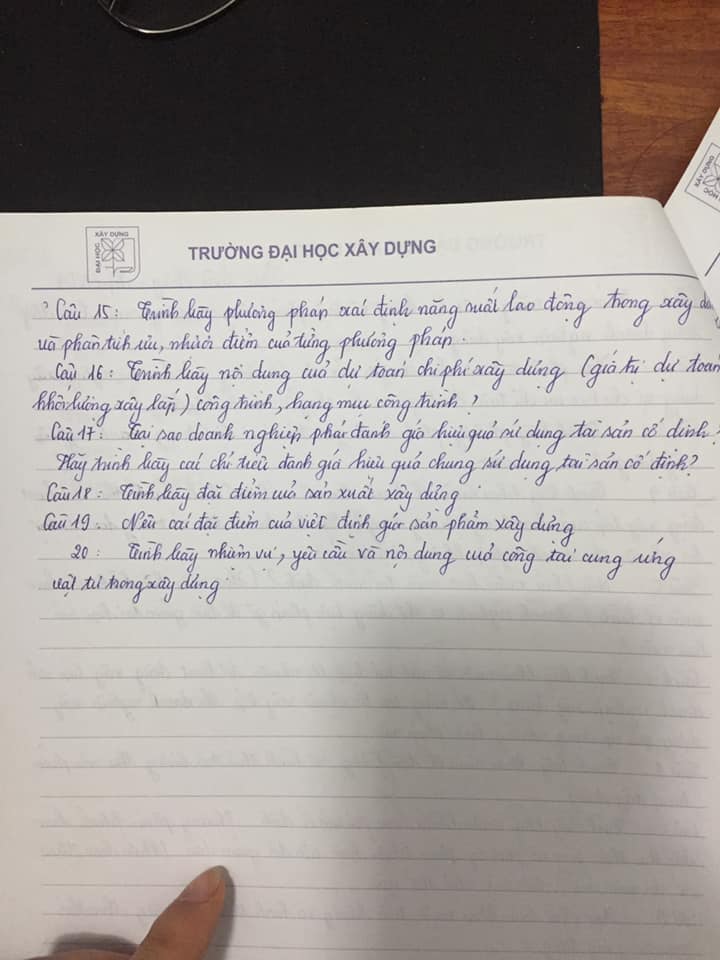 XÂY DỰNG
ĐẠI HỌC
TRƯỜNG ĐẠI HỌC XÂY DỰNG
XÂY DỰNG
Câu 15: Trình bày phương pháp xác định năng suất lao động trong xây
và phân tích ưu, nhược điểm của từng phương pháp.
Câu 16: Trình bày nội dung của dự toán chi phí xây dựng (giá trị dự toán
khối lượng xây lắp) công trình, hạng mục công trình?
Câu 17: Tại sao doanh nghiệp phải đánh giá hiệu quả sử dụng tài sản cố định?
Hãy trình bày các chỉ tiêu đánh giá hiệu quả chung sử dụng tài sản cố định?
Câu 18: Trình bày đặc điểm của sản xuất xây dựng
Câu 19. Nêu các đặc điểm của việc định giá sản phẩm xây dựng
20: Trình bày nhiệm vụ, yêu cầu và nội dung của công tác cung ứng
vật tư trong xây dựng.